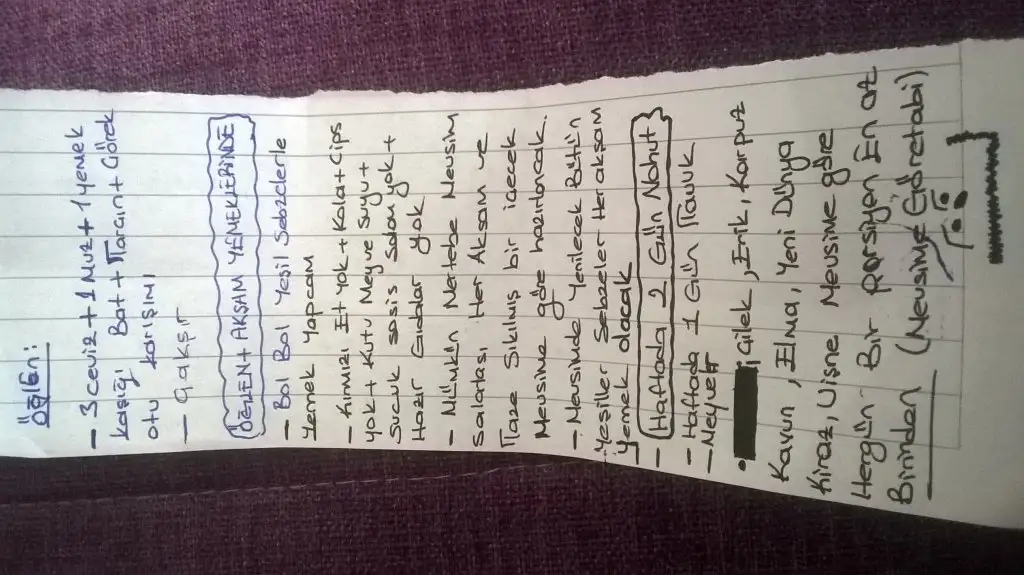 Öğlen:
- 3 Ceviz + 1 Muz + 1 Yemek
Kaşığı Bal + Tarçın + Çörek
otu karışımı
- Çakşır
ÖĞLEN + AKŞAM YEMEKLERİNDE
- Bol Bol Yeşil Sebzelerle
Yemek Yapcam
- Kırmızı Et Yok + Kola + Cips
yok + Kutu Meyve Suyu +
Sucuk sosis salam yok +
Hazır Gıdalar yok
- Mümkün Mertebe Mevsim
Salatası Her Akşam ve
Taze Sıkılmış bir içecek
Mevsime göre hazırlancak.
- Mevsimde Yenilecek Bütün
Yeşiller Sebzeler Her akşam
Yemek olacak
- Haftada 2 Gün Nohut
- Haftada 1 Gün Tavuk
- Meyve
• Çilek, Erik, Karpuz
Kavun, Elma, Yeni Dünya
Kiraz, Vişne Mevsime göre
Hergün Bir porsiyon En az
Birinden (Mevsime Göre tabi)